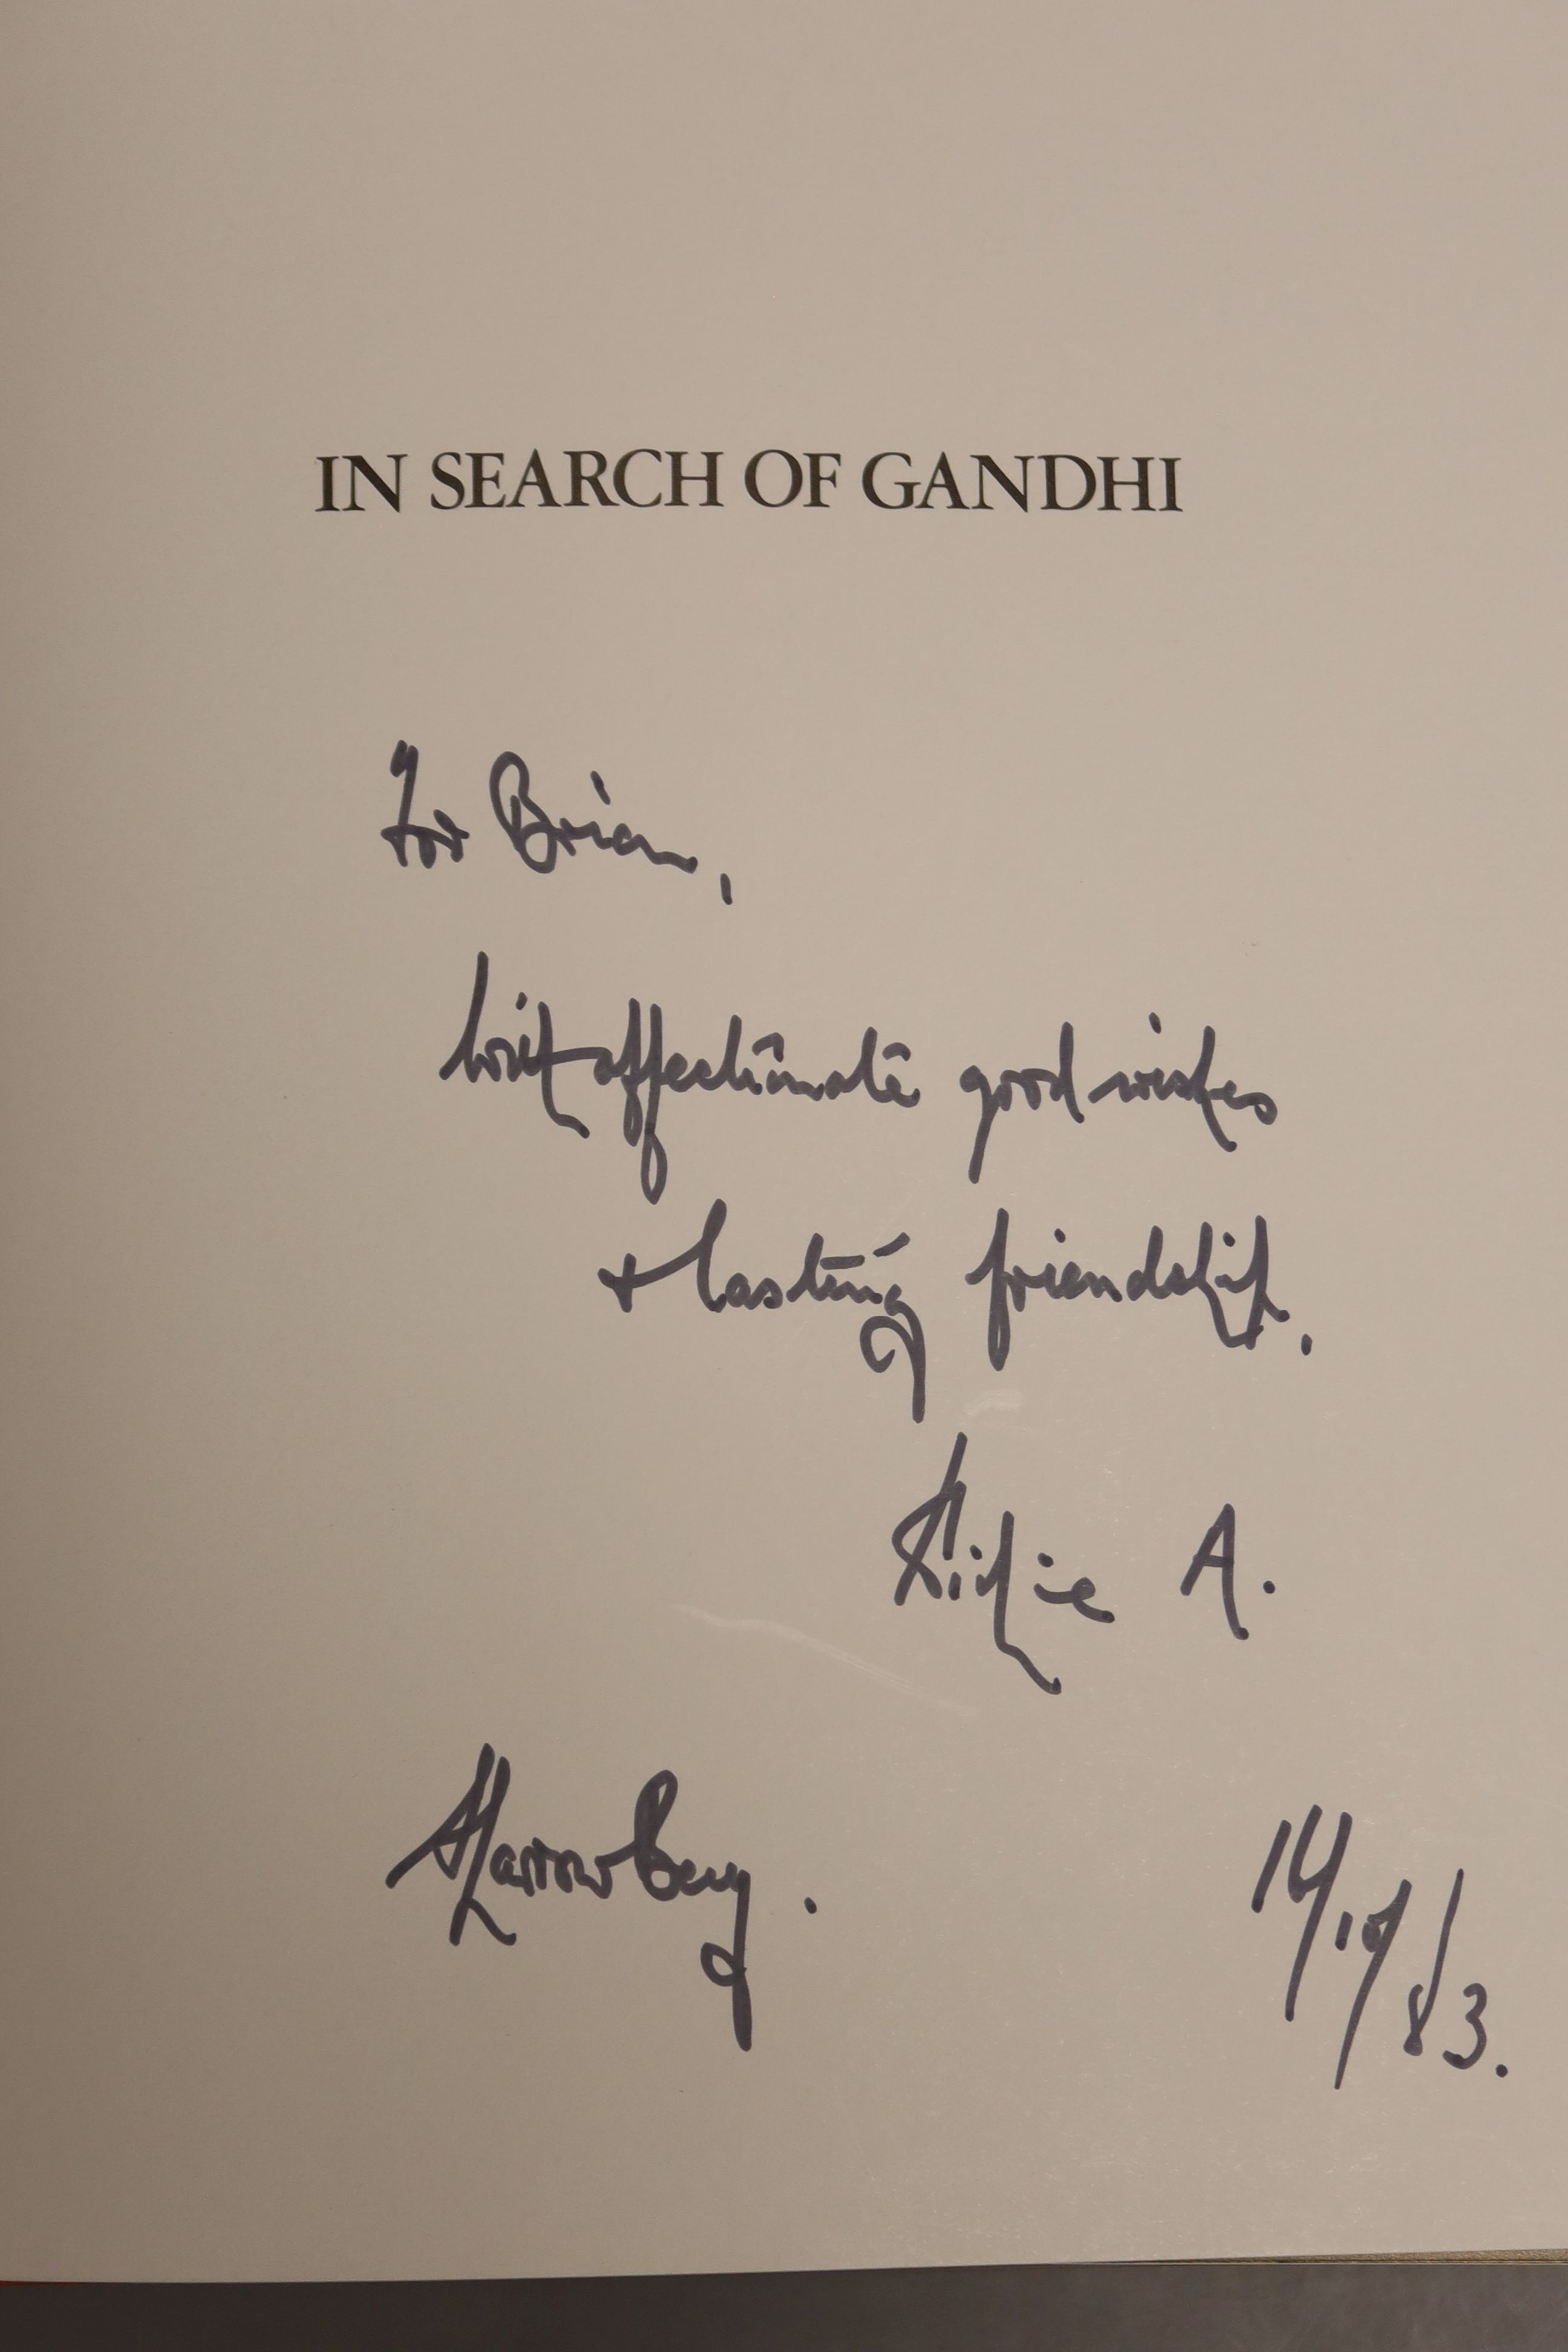 IN SEARCH OF GANDHI
For Brian,
with affectionate good wishes
+ lasting friendship.
Richie A.
Harrow Bury.
14/10/83.